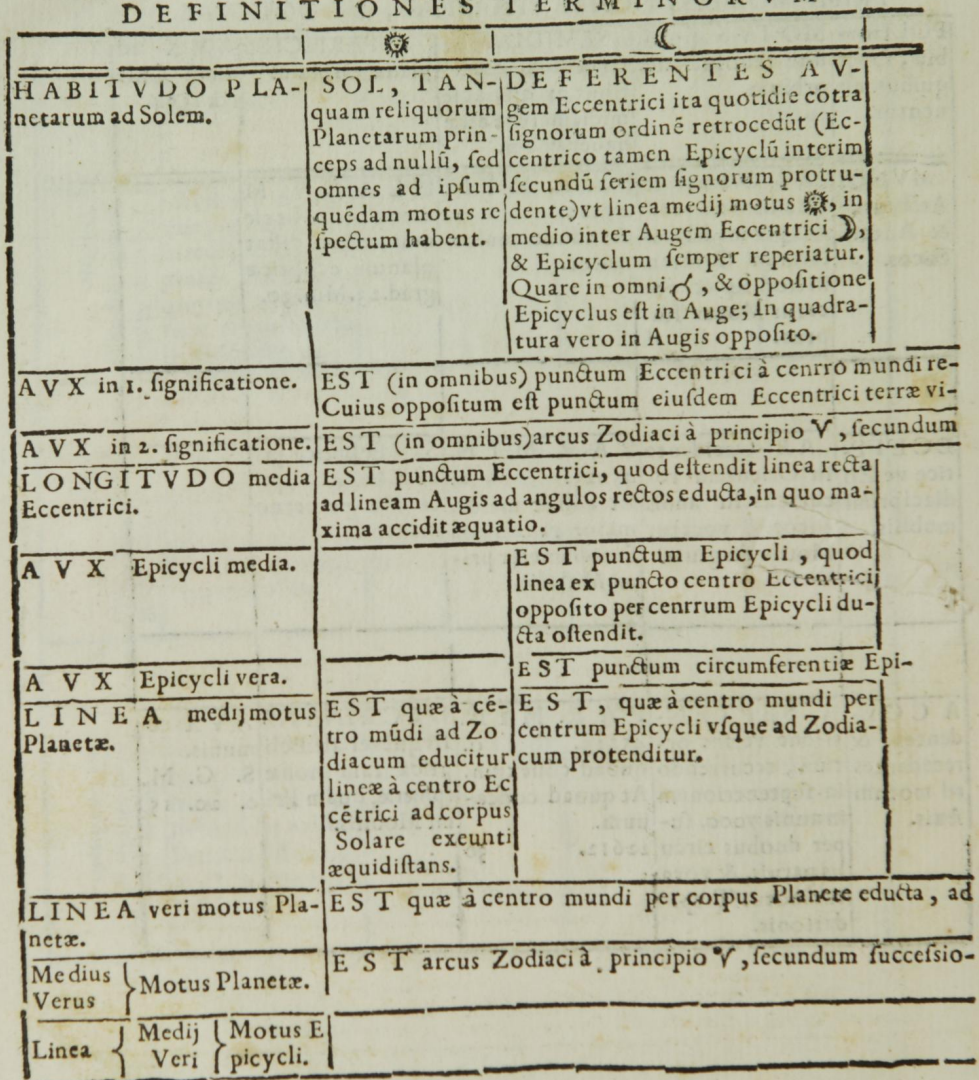 DEFINITIONES
☀ ☾
HABITVDO PLA-
netarum ad Solem.
SOL, TAN-
quam reliquorum
Planetarum prin-
ceps ad nullū, ſed
omnes ad ipſum
quēdam motus re
ſpectum habent.
DEFERENTES AV-
gem Eccentrici ita quotidie cōtra
ſignorum ordinē retrocedūt (Ec-
centrico tamen Epicyclū interim
ſecundū ſeriem ſignorum protru-
dente)vt linea medij motus ☀, in
medio inter Augem Eccentrici ☽,
& Epicyclum ſemper reperiatur.
Quare in omni ☌, & oppoſitione
Epicyclus eſt in Auge; in quadra-
tura vero in Augis oppoſito.
AVX in 1. ſignificatione.
EST (in omnibus) punctum Eccentrici à cenrro mundi re-
Cuius oppoſitum eſt punctum eiuſdem Eccentrici terræ vi-
AVX in 2. ſignificatione.
EST (in omnibus)arcus Zodiaci à principio ♈, ſecundum
LONGITVDO media
Eccentrici.
EST punctum Eccentrici, quod eſtendit linea recta
ad lineam Augis ad angulos rectos educta,in quo ma-
xima accidit æquatio.
AVX Epicycli media.
EST punctum Epicycli, quod
linea ex puncto centro Eccentrici
oppoſito per cenrrum Epicycli du-
cta oſtendit.
AVX Epicycli vera.
EST punctum circumferentiæ Epi-
LINEA medij motus
Planetæ.
EST quæ à cē-
tro mūdi ad Zo
diacum educitur
lineæ à centro Ec
cētrici ad corpus
Solare exeunti
æquidiſtans.
EST, quæ à centro mundi per
centrum Epicycli vſque ad Zodia-
cum protenditur.
LINEA veri motus Pla-
netæ.
EST quæ à centro mundi per corpus Planete educta, ad
Medius
Verus
Motus Planetæ.
EST arcus Zodiaci à principio ♈, ſecundum ſucceſsio-
Linea
Medij
Veri
Motus E
picycli.